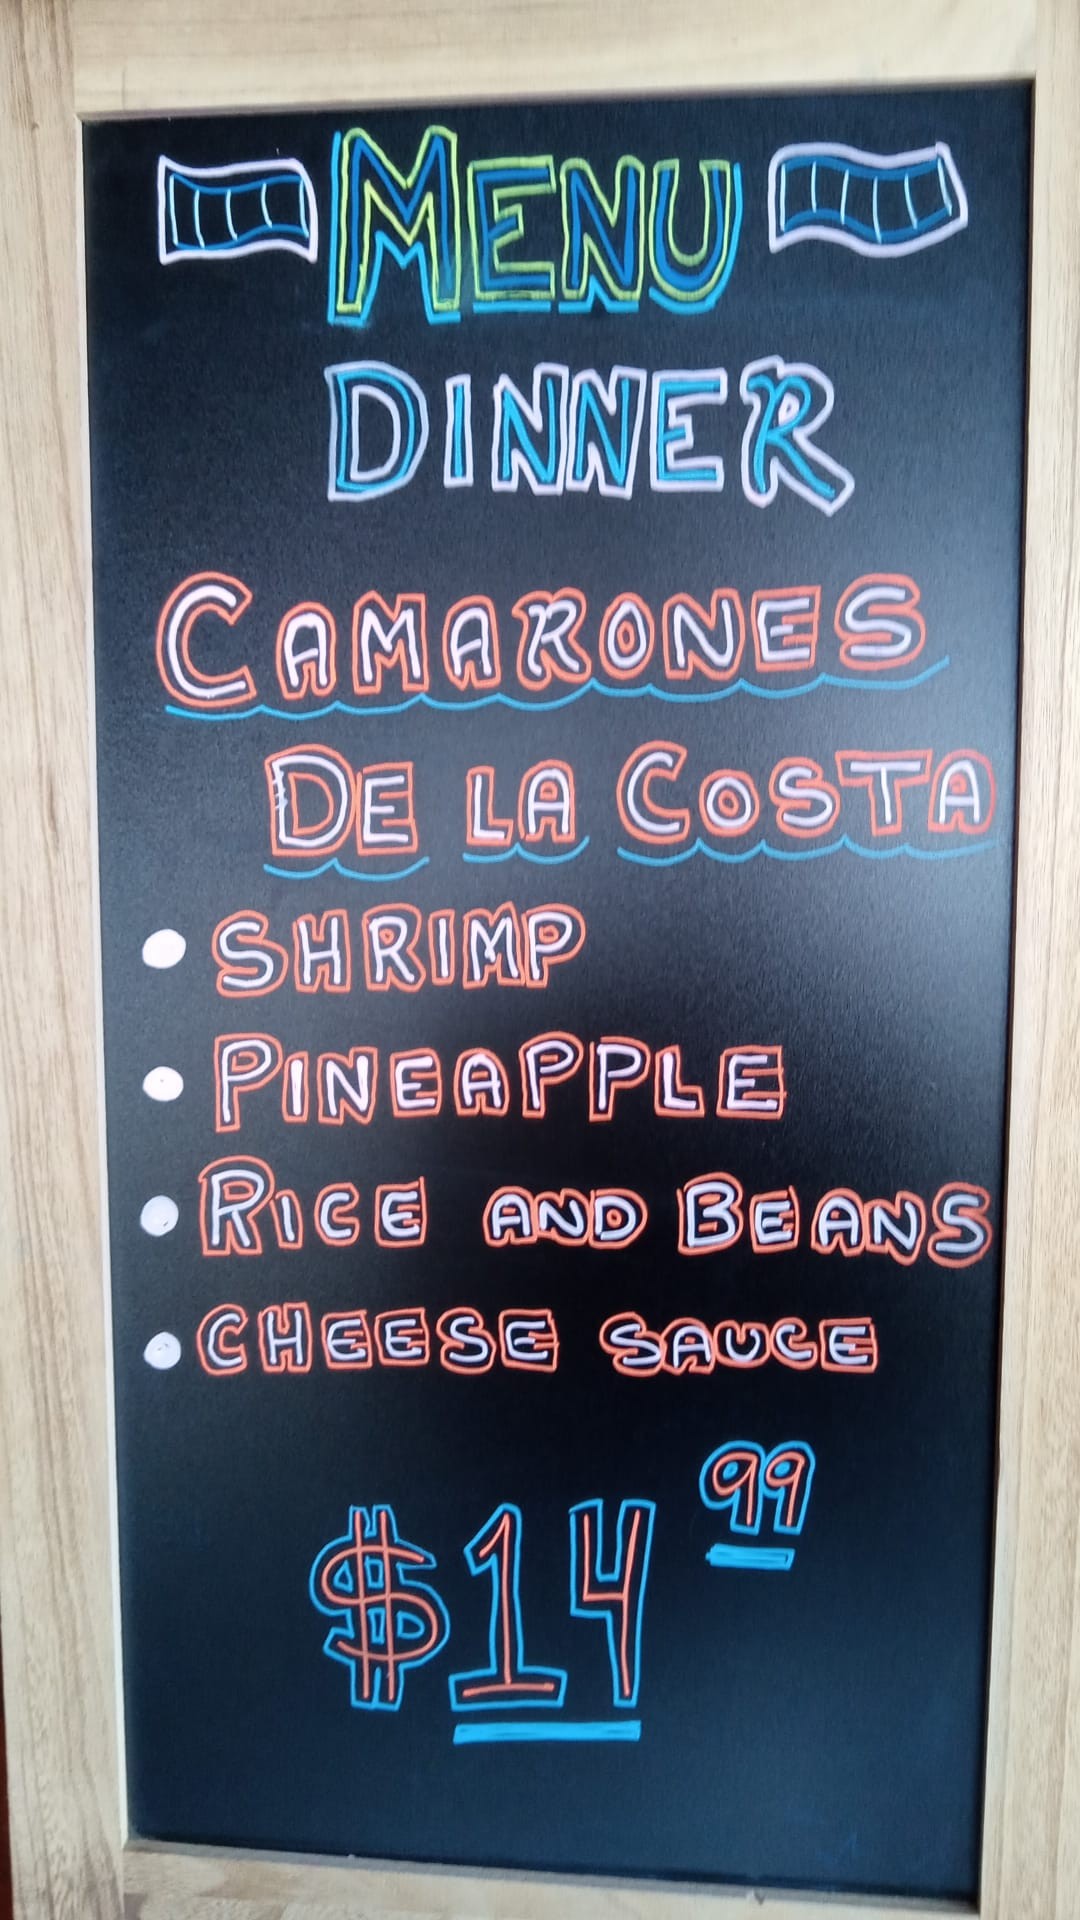 MENU
DINNER
CAMARONES
DE LA COSTA
• SHRIMP
• PINEAPPLE
• RICE AND BEANS
• CHEESE SAUCE
$14 99